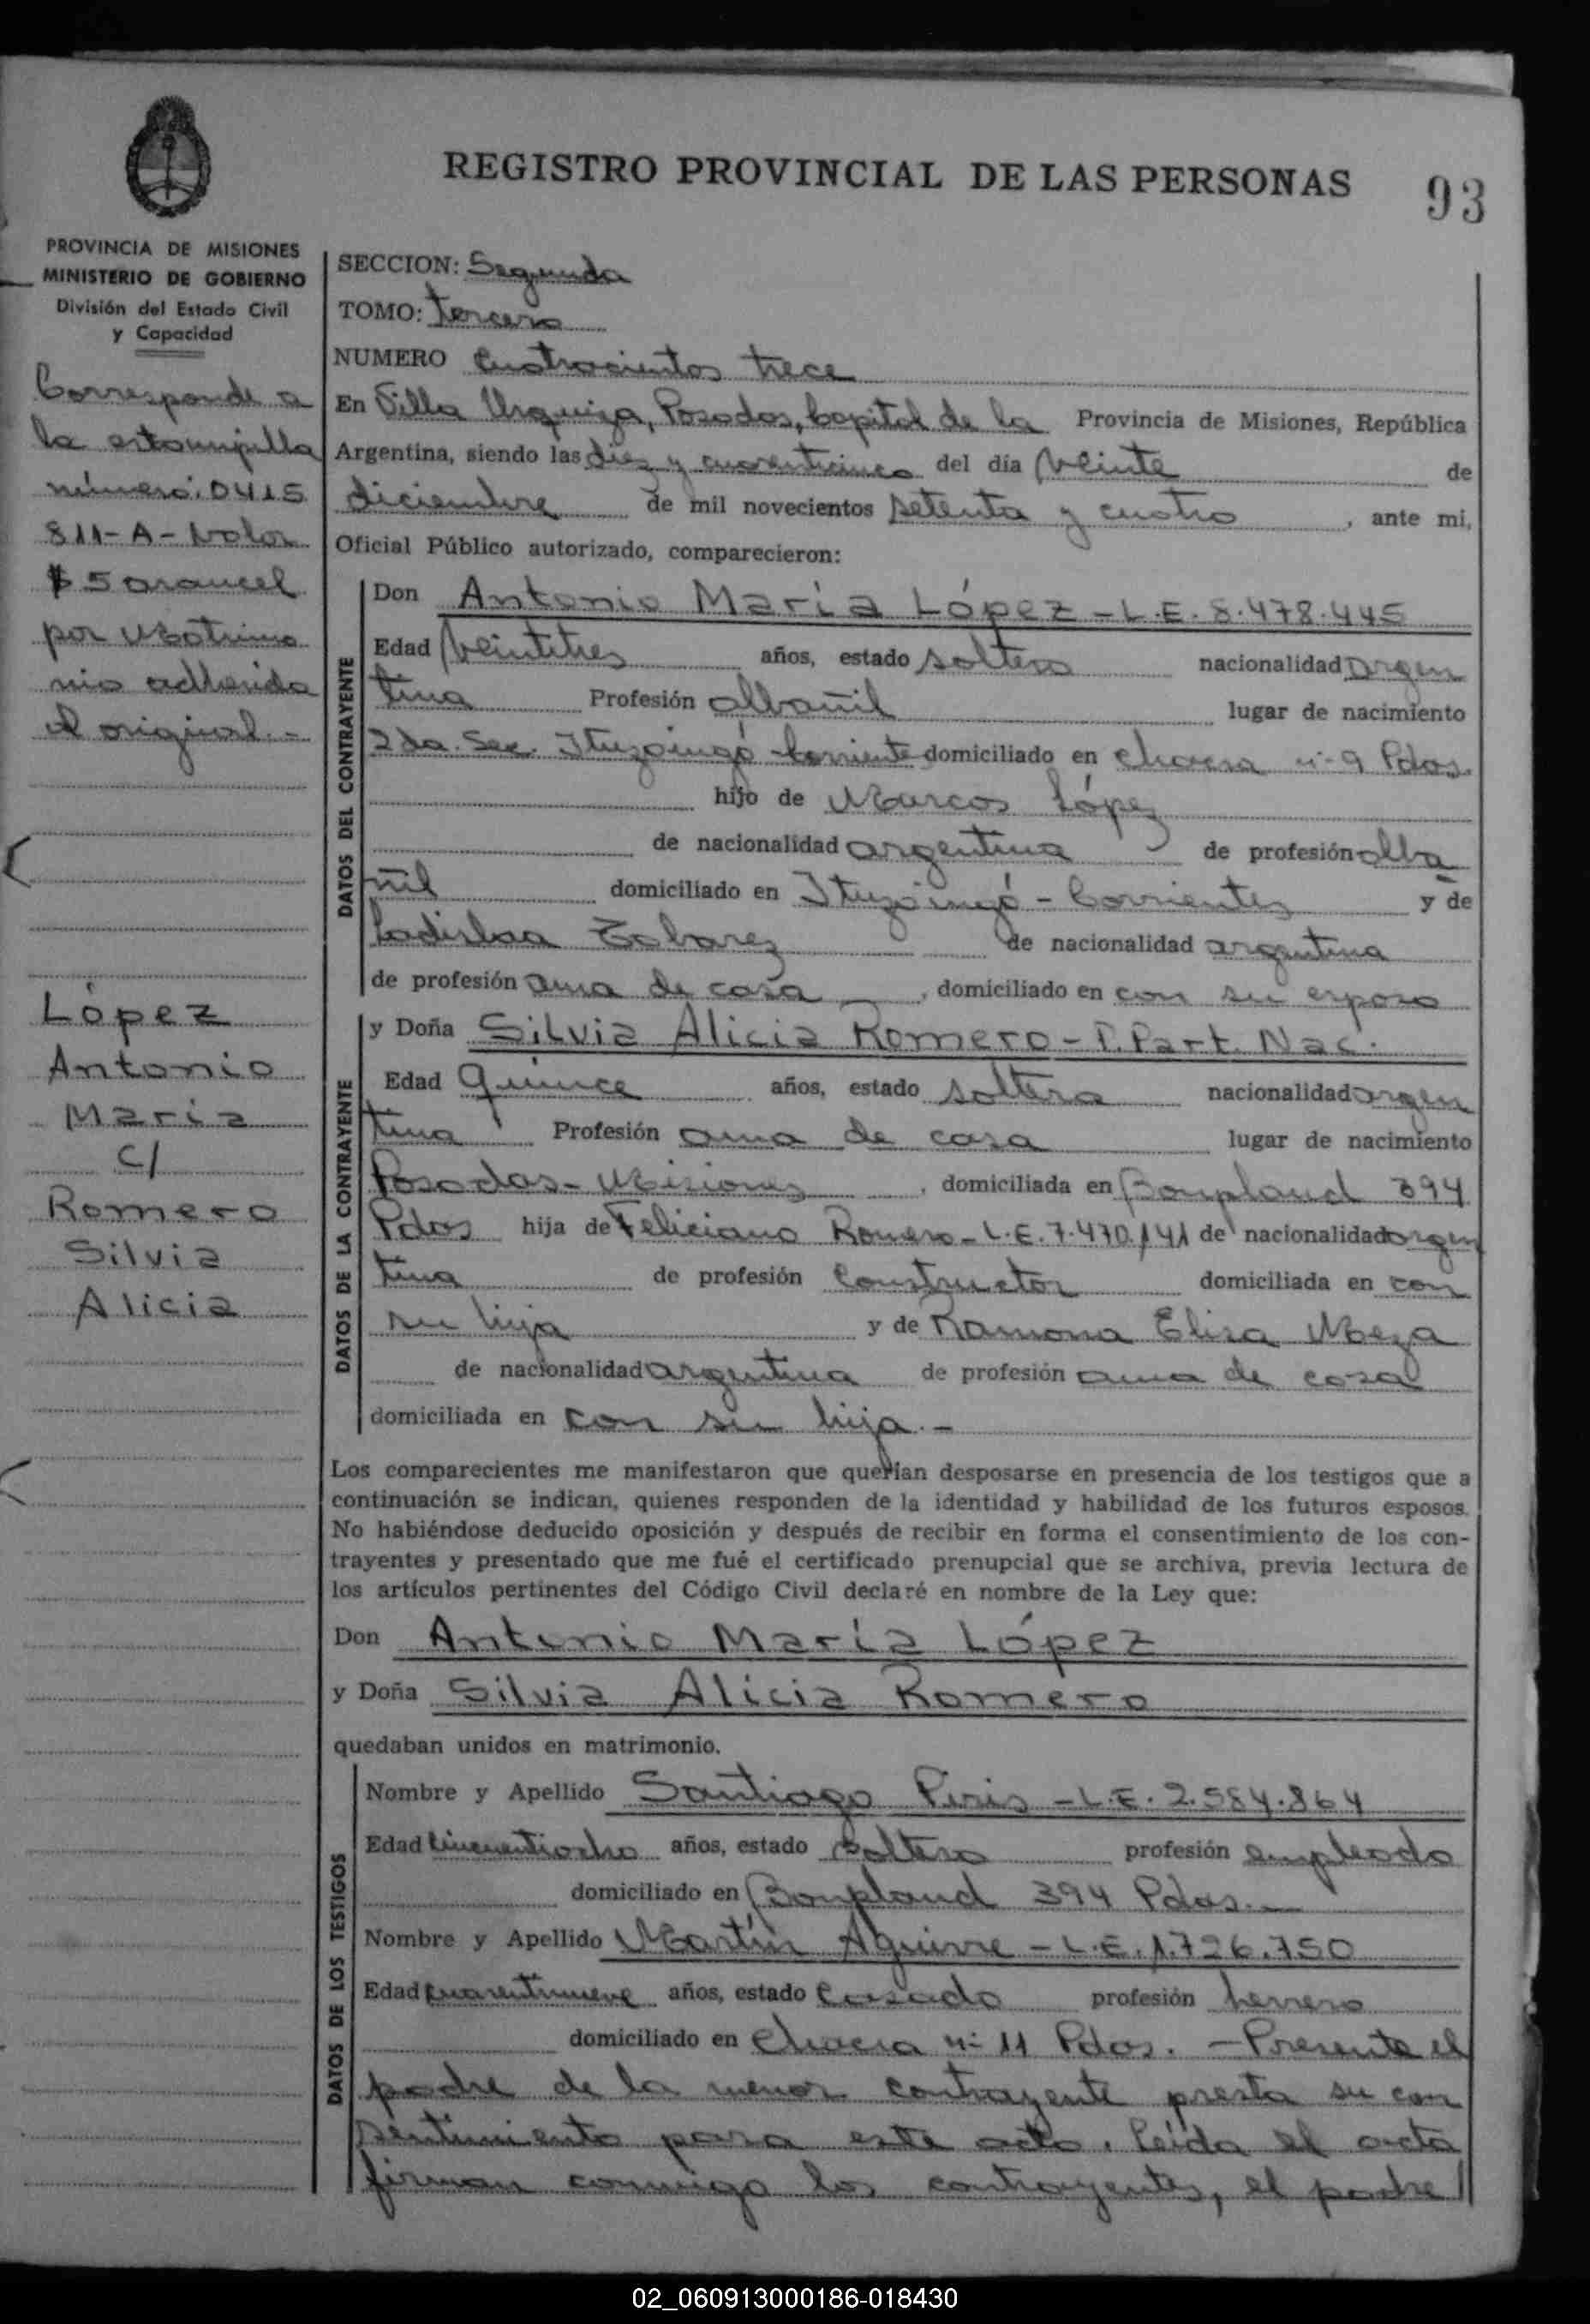 REGISTRO PROVINCIAL DE LAS PERSONAS
93
PROVINCIA DE MISIONES
MINISTERIO DE GOBIERNO
División del Estado Civil
y Capacidad
Corresponde a
la estampilla
número: 0415
811-A-Valor
$ 5 arancel
por Matrimo
nio adherida
al original.-
López
Antonio
María
c/
Romero
Silvia
Alicia
SECCION: Segunda
TOMO: tercero
NUMERO Cuatrocientos trece
En Villa Urquiza, Posadas, Capital de la Provincia de Misiones, República
Argentina, siendo las diez y cuarenticinco del día veinte de
diciembre de mil novecientos setenta y cuatro, ante mi,
Oficial Público autorizado, comparecieron:
DATOS DEL CONTRAYENTE
Don Antonio María López - L.E. 8.478.445
Edad Veintitres años, estado soltero nacionalidad argen
tina Profesión albañil lugar de nacimiento
2da. Sec. Ituzaingó - Corrientes domiciliado en chacra n° 9 Pdas.
hijo de Marcos López
de nacionalidad argentina de profesión alba
ñil domiciliado en Ituzaingó - Corrientes y de
Ladislaa de nacionalidad argentina
de profesión ama de casa, domiciliado en con su esposo
DATOS DE LA CONTRAYENTE
y Doña Silvia Alicia Romero - P. Part. Nac.
Edad Quince años, estado soltera nacionalidad argen
tina Profesión ama de casa lugar de nacimiento
Posadas - Misiones, domiciliada en Bonpland 394
Pdas hija de Feliciano Romero - L.E. 7.470.141 de nacionalidad argen
tina de profesión Constructor domiciliada en con
su hija y de Ramona Elisa Meza
de nacionalidad argentina de profesión ama de casa
domiciliada en con su hija.-
Los comparecientes me manifestaron que querían desposarse en presencia de los testigos que a
continuación se indican, quienes responden de la identidad y habilidad de los futuros esposos.
No habiéndose deducido oposición y después de recibir en forma el consentimiento de los con-
trayentes y presentado que me fué el certificado prenupcial que se archiva, previa lectura de
los artículos pertinentes del Código Civil declaré en nombre de la Ley que:
Don Antonio María López
y Doña Silvia Alicia Romero
quedaban unidos en matrimonio.
DATOS DE LOS TESTIGOS
Nombre y Apellido Santiago Piris - L.E. 2.584.864
Edad Cincuentiocho años, estado Soltero profesión empleado
domiciliado en Bonpland 394 Pdas.-
Nombre y Apellido Martín Aguirre - L.E. 1.726.750
Edad cuarentinueve años, estado Casado profesión herrero
domiciliado en Chacra n° 11 Pdas. - Presente el
padre de la menor contrayente presta su con
sentimiento para este acto. Leída el acta
firman conmigo los contrayentes, el padre
02_060913000186-018430